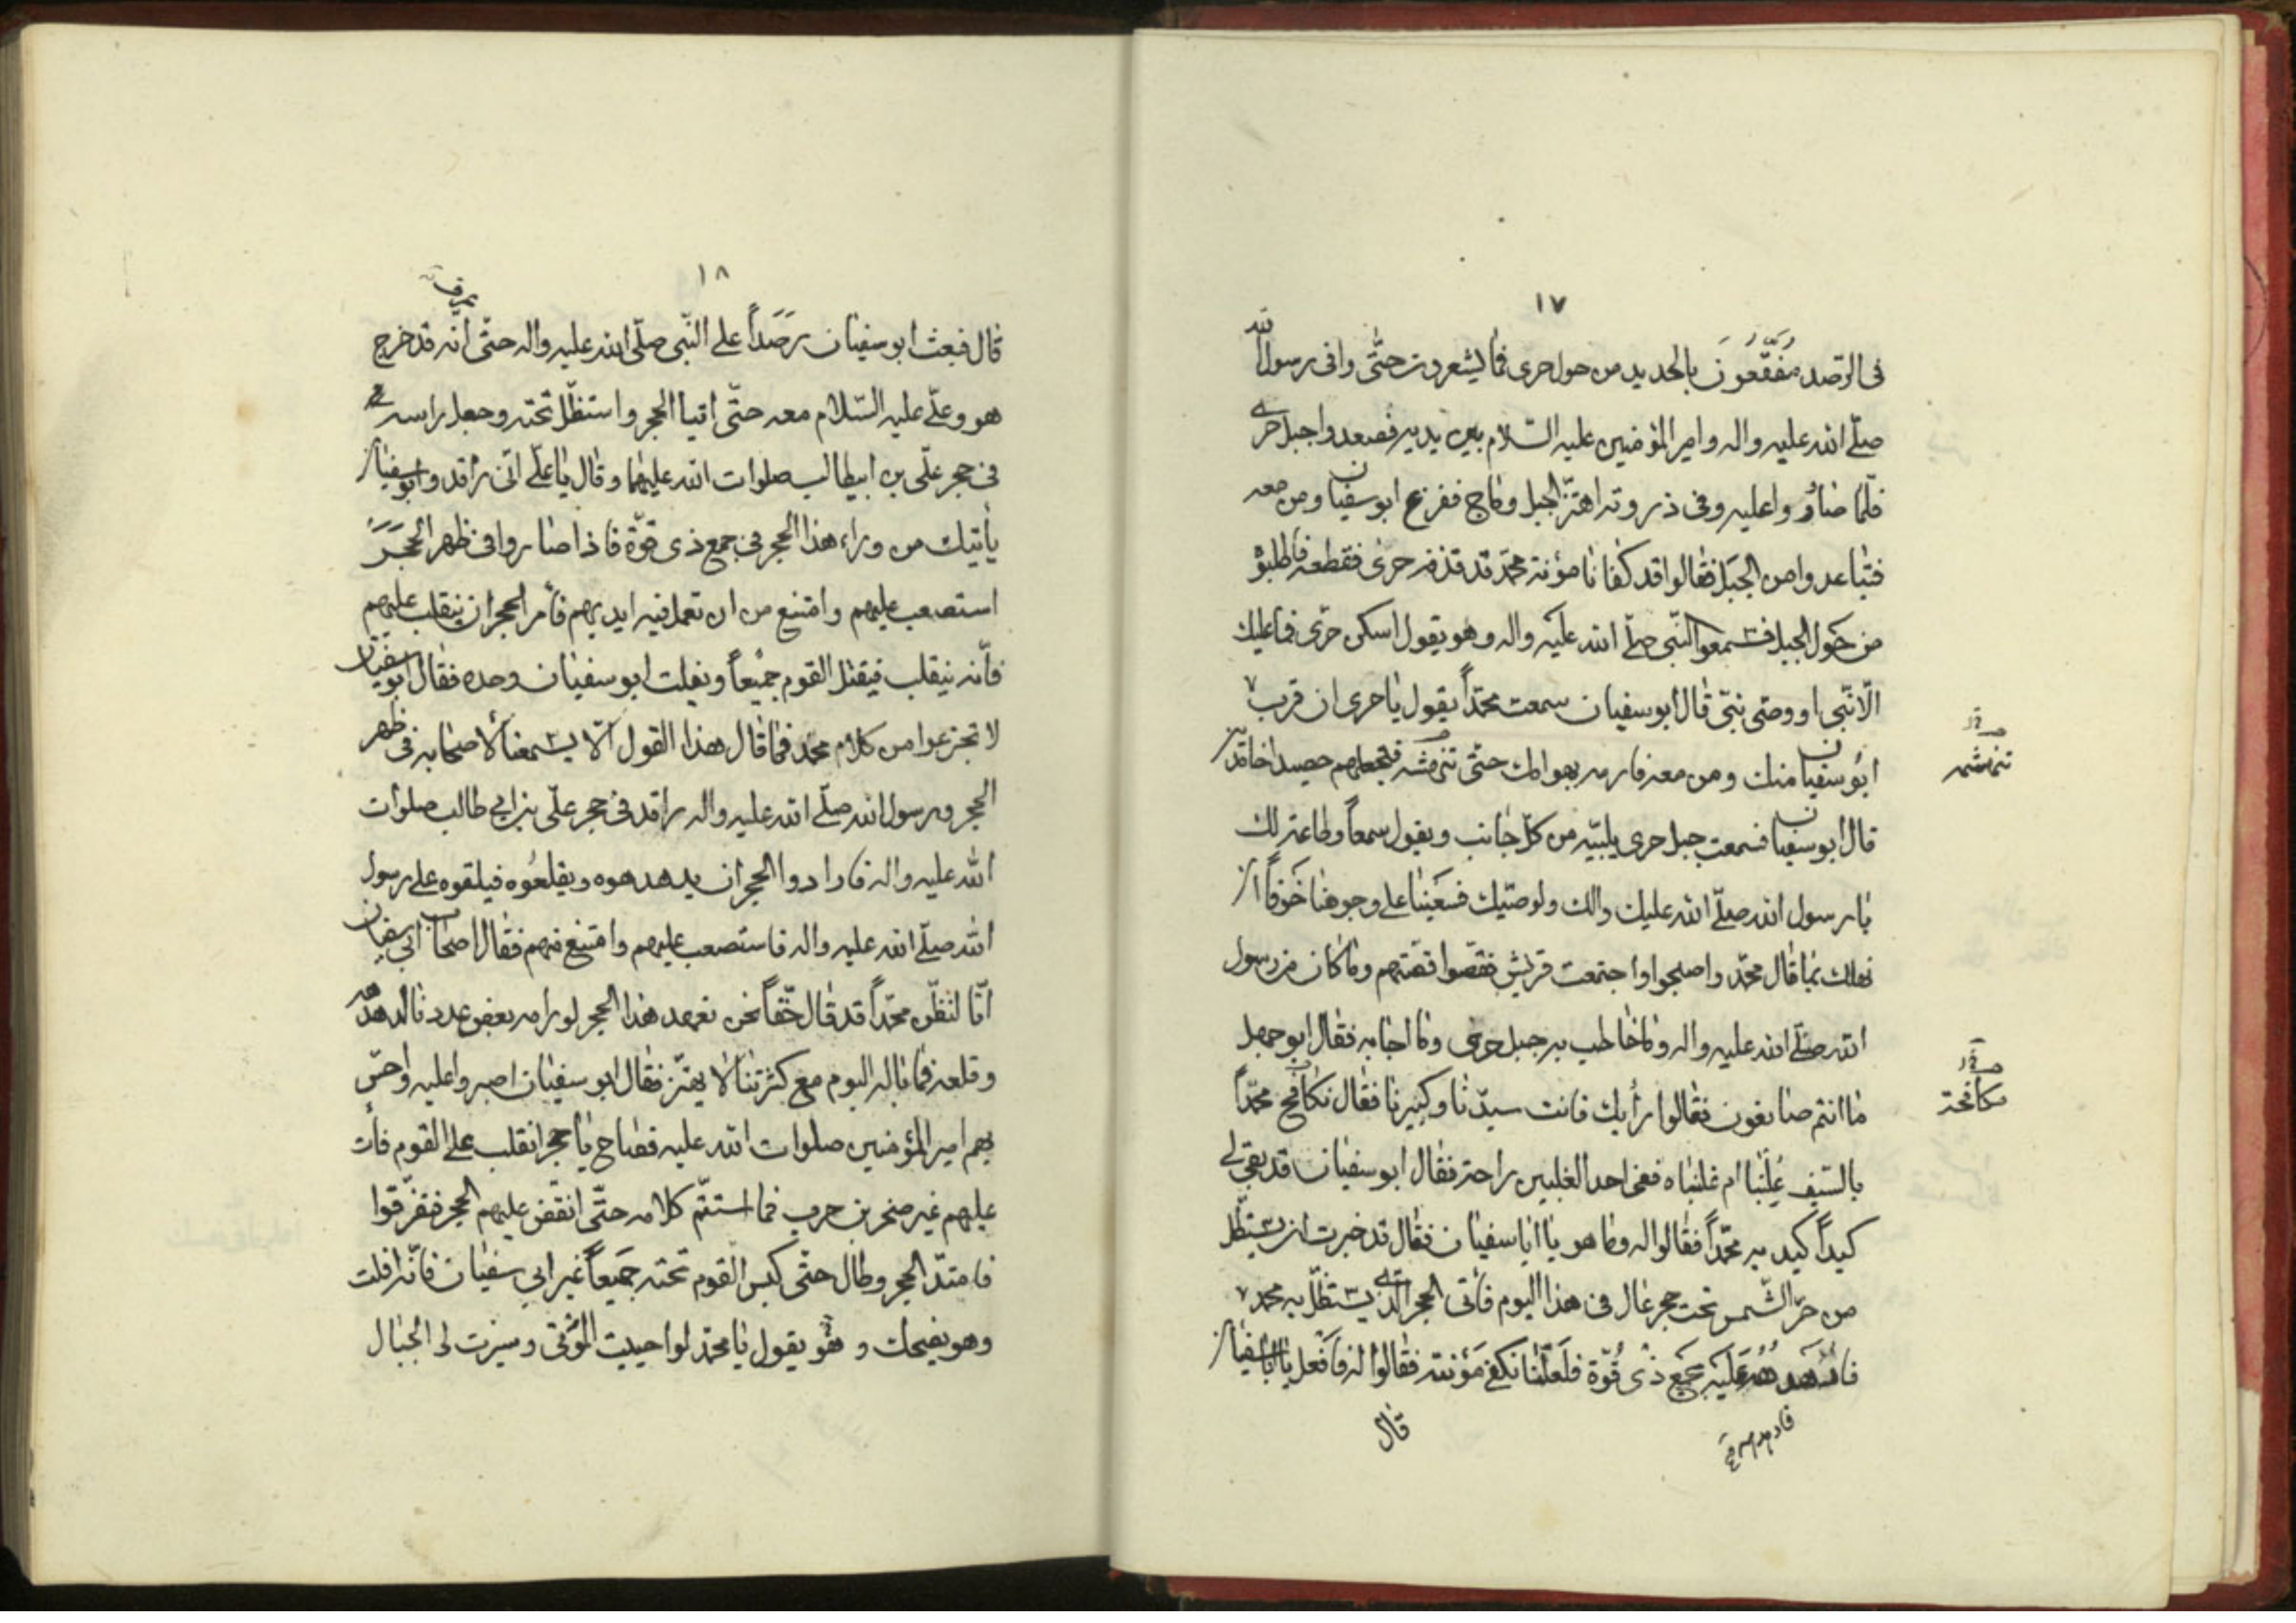 ١٧
فى الرّصد مُقَنَّعُونَ بالحديد من حول حرى فما يشعرون حتّى وافى رسول الله
صلّى الله عليه واله وامير المؤمنين عليه السّلام بين يديه فصعدوا جبل حرى
فلمّا صاروا عليه وفى ذروته اهتزّ الجبل وماج ففزع ابوسفيان ومن معه
فتباعدوا من الجبل فقالوا قد كفانا مؤنة محمّد قد قذفه حرى فقطعه فاطلبوه
من حول الجبل فسمعوا النّبى صلّى الله عليه واله وهو يقول اسكن حرى فما عليك
الّا نبّى او وصّى نبّى قال ابوسفيان سمعت محمّداً يقول يا حرى ان قرب
ابوسفيان منك ومن معه فارمه بهوامك حتّى تنهشه فتجعلهم حصيدا خامدين
قال ابوسفيان فسمعت جبل حرى يلبّيه من كلّ جانب ويقول سمعاً وطاعة لك
يا رسول الله صلّى الله عليك والك ولوصيّك فسعينا على وجوهنا خوفاً ان
نهلك بما قال محمّد واصبحوا واجتمعت قريش فقصّوا قصّتهم وما كان من رسول
الله صلّى الله عليه واله وما خاطب به جبل حرى وما اجابه فقال ابوجهل
ما انتم صانعون فقالوا رأيك فانت سيدّنا وكبيرنا فقال نكافح محمّداً
بالسّيف غلبنا ام غلبناه ففى احد الغلبين راحة فقال ابوسفيان قد بقى لى
كيداً اكيد به محمّداً فقالوا له وما هو يا ابا سفيان فقال قد خبرت انه يستظّل
من حرّ الشّمس تحت حجر عال فى هذا اليوم فأتى الحجر الّذى يستظّل به محمد
عليه بجمع ذى قُوّة فلعلّنا نكفى مؤنته فقالوا له فافعل يا اباسفيان
قال
تنهشه
مكافحة
١٨
قال فبعث ابوسفيان رصداً على النّبى صلّى الله عليه واله حتّى انّه قد خرج
هو وعلّى عليه السّلام معه حتّى اتيا الحجر واستظّل تحته وجعل راسه
فى حجر علّى بن ابيطالب صلوات الله عليهما وقال يا علّى انّى راقد وابوسفيان
يأتيك من وراء هذا الحجر فى جمع ذى قوّة فاذا صاروا فى ظهر الحجر
استصعب عليهم وامتنع من ان تعمل فيه ايديهم فأمر الحجر ان ينقلب عليهم
فأنّه ينقلب فيقتل القوم جميعاً ويفلت ابوسفيان وحده فقال ابوسفيان
لا تجزعوا من كلام محمّد فما قال هذا القول الّا يسمعنا لاصحابه فى ظهر
الحجر ورسول الله صلّى الله عليه واله راقد فى حجر علّى بن ابى طالب صلوات
الله عليه واله فارادوا الحجر ان يدهدهوه ويقلعوه فيلقوه على رسول
الله صلّى الله عليه واله فاستصعب عليهم وامتنع منهم فقال اصحاب ابى سفيان
انّا لنظّن محمّداً قد قال حقّاً نحن نعهد هذا الحجر لو رامه بعض عددنا لدهدهه
وقلعه فما باله اليوم مع كثرتنا لا يهتز فقال ابوسفيان اصبروا عليه واحسّ
بهم امير المؤمنين صلوات الله عليه فصاح يا حجر انقلب على القوم فأت
عليهم غير صخر بن حرب فما استتّم كلامه حتّى انقضّ عليهم الحجر فتفرّقوا
فامتدّ الحجر وطال حتّى كبس القوم تحته جميعاً غير ابى سفيان فأنّه افلت
وهو يضحك و هو يقول يا محمّد لو احييت الموتى وسيرت لى الجبال